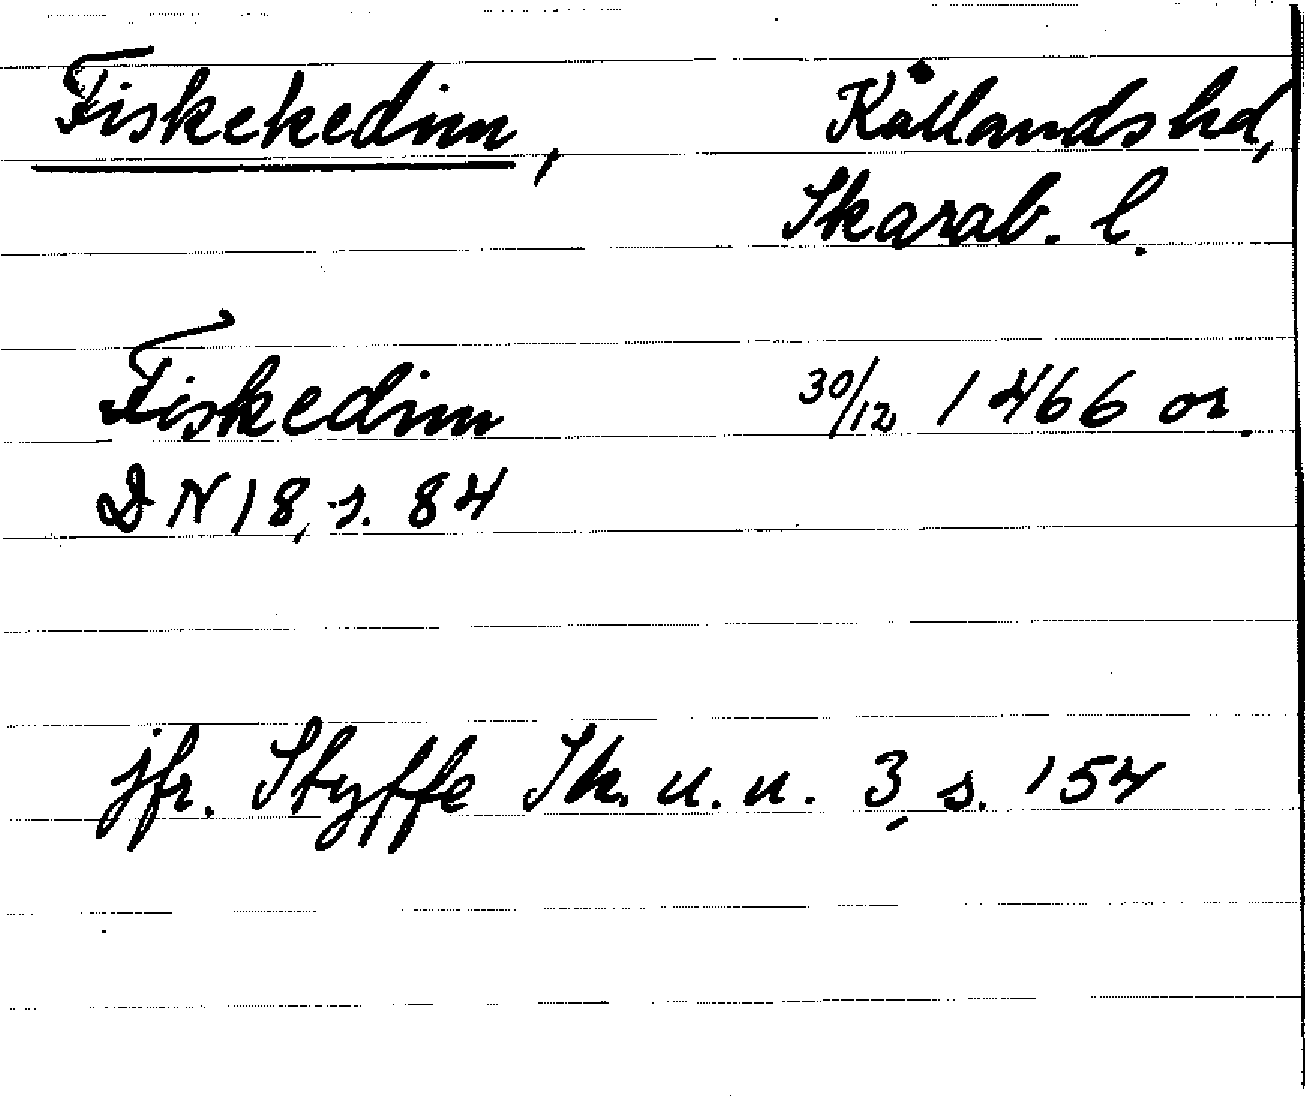 Fiskekedim, Kållandshd,
Skarab. l.
Fiskedim 30/12 1466 or.
DN 18, s. 84
jfr. Styffe Sk. u. u. 3, s. 154